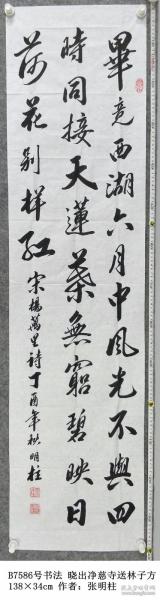 畢竟西湖六月中風光不與四
時同接天蓮葉無窮碧映日
荷花別樣紅 宋楊萬里詩丁酉年秋明柱
B7586号书法 晓出净慈寺送林子方
138×34cm 作者：张明柱